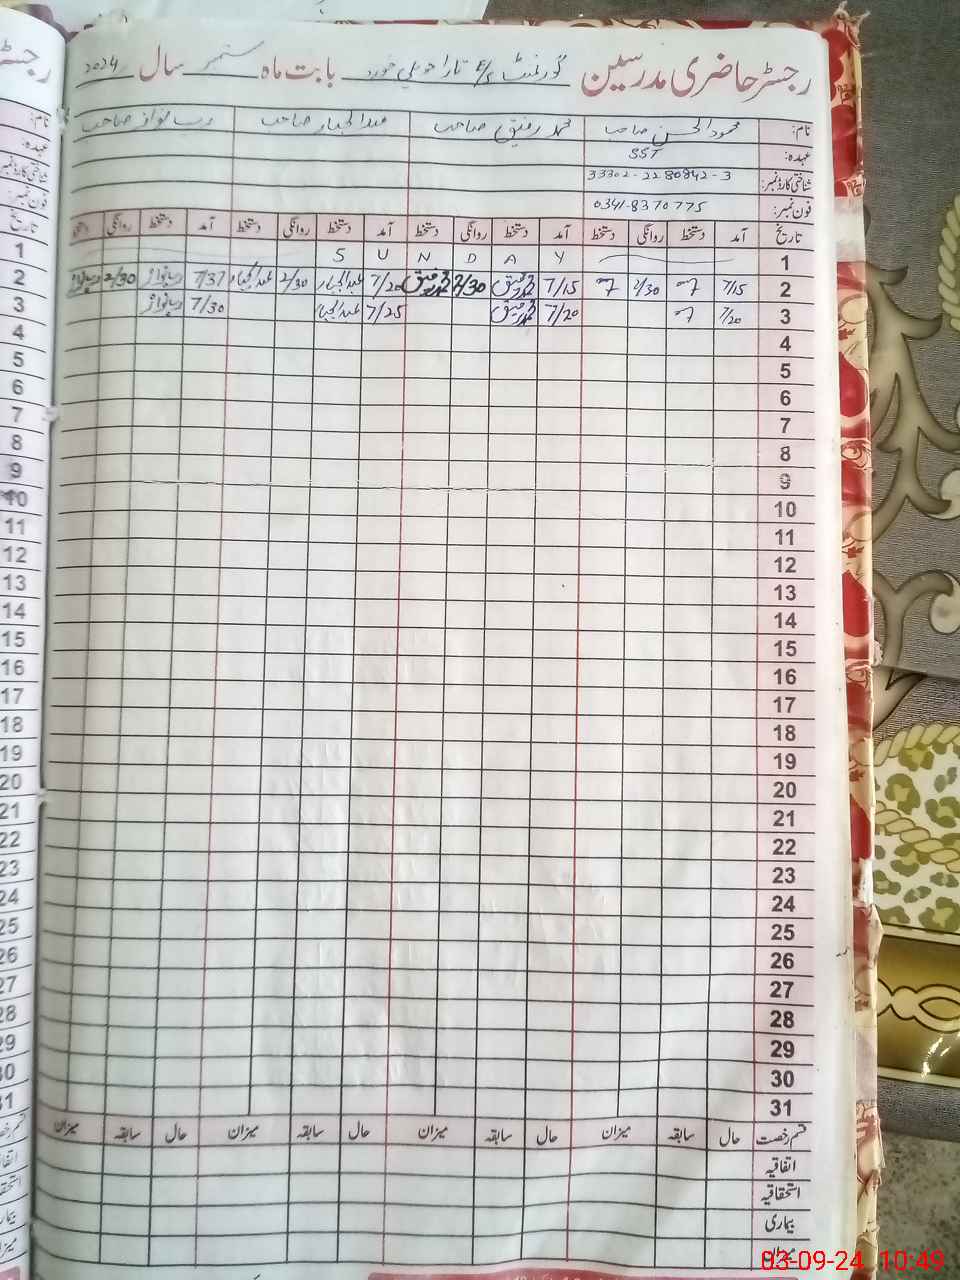 رجسٹر حاضری مدرسین گورنمنٹ E/S تارا حویلی خورد بابت ماہ ستمبر سال 2024
نام: محمود الحسن صاحب محمد رفیق صاحب عبدالجبار صاحب رب نواز صاحب
عہدہ: SST
شناختی کارڈ نمبر: 33302-2280842-3
فون نمبر: 0341-8370775
تاریخ آمد دستخط روانگی دستخط آمد دستخط روانگی دستخط آمد دستخط روانگی دستخط آمد دستخط روانگی دستخط
1 S U N D A Y
2 7/15 2/30 7/15 محمد رفیق 2/30 محمد رفیق 7/20 عبدالجبار 2/30 عبدالجبار 7/37 ربنواز 2/30 ربنواز
3 7/20 7/20 محمد رفیق 7/25 عبدالجبار 7/30 ربنواز
4
5
6
7
8
9
10
11
12
13
14
15
16
17
18
19
20
21
22
23
24
25
26
27
28
29
30
31
قسم رخصت حال سابقہ میزان حال سابقہ میزان حال سابقہ میزان حال سابقہ میزان
اتفاقیہ
استحقاقیہ
بیماری
میزان
03-09-24 10:49